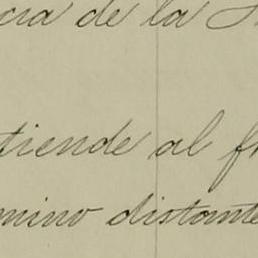 cia de la
tiende al
mino distante